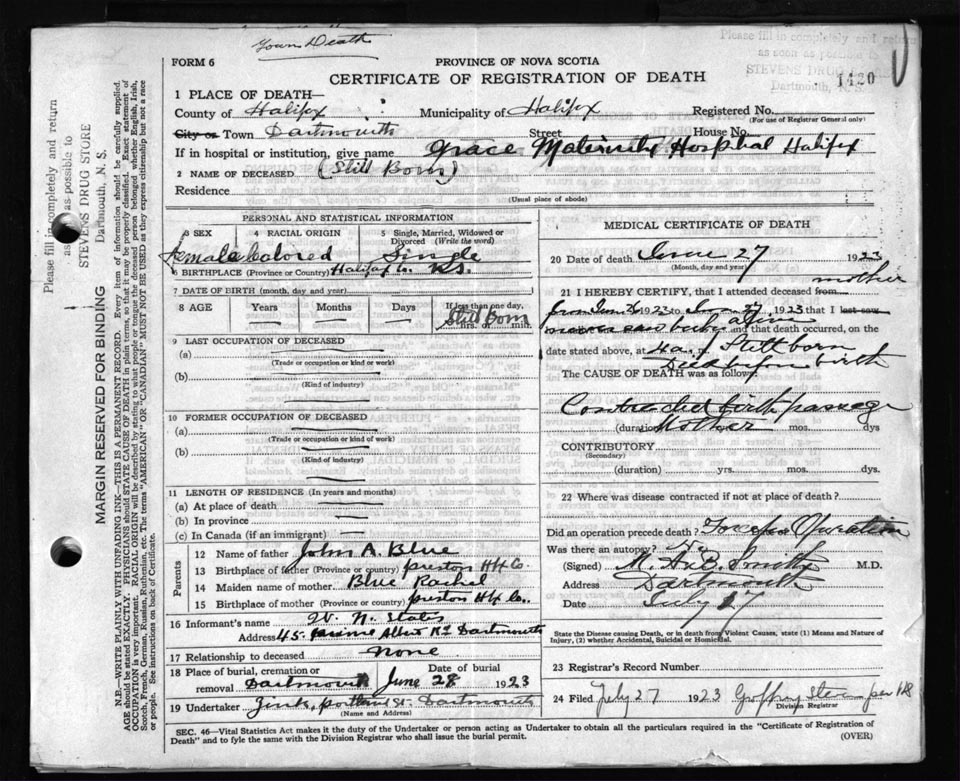 Town Death
Please fill in completely and return
as soon as possible to
STEVENS DRUG STORE
Dartmouth, N. S.
1420
FORM 6
PROVINCE OF NOVA SCOTIA
CERTIFICATE OF REGISTRATION OF DEATH
1 PLACE OF DEATH—
County of Halifax Municipality of Halifax Registered No.
(For use of Registrar General only)
City or Town Dartmouth Street House No.
If in hospital or institution, give name Grace Maternity Hospital Halifax
2 NAME OF DECEASED (Still Born)
Residence
(Usual place of abode)
PERSONAL AND STATISTICAL INFORMATION
3 SEX 4 RACIAL ORIGIN 5 Single, Married, Widowed or Divorced (Write the word)
Female Colored Single
6 BIRTHPLACE (Province or Country) Halifax Co. N.S.
7 DATE OF BIRTH (month, day and year)
8 AGE Years Months Days If less than one day,
Still Born
hrs. or min.
9 LAST OCCUPATION OF DECEASED
(a)
(Trade or occupation or kind of work)
(b)
(Kind of industry)
10 FORMER OCCUPATION OF DECEASED
(a)
(Trade or occupation or kind of work)
(b)
(Kind of industry)
11 LENGTH OF RESIDENCE (In years and months)
(a) At place of death
(b) In province
(c) In Canada (if an immigrant)
Parents
12 Name of father John A. Blue
13 Birthplace of father (Province or country) Preston Hfx Co
14 Maiden name of mother Blue Rachel
15 Birthplace of mother (Province or country) Preston Hfx Co.
16 Informant's name W. N.
Address 45 Albert Rd Dartmouth
17 Relationship to deceased None
18 Place of burial, cremation or removal Dartmouth Date of burial June 28 1923
19 Undertaker Zink, Portland St. Dartmouth
(Name and Address)
MEDICAL CERTIFICATE OF DEATH
20 Date of death June 27 1923
(Month, day and year)
mother
21 I HEREBY CERTIFY, that I attended deceased from
from June 1923 to 1923 that I last saw
and that death occurred, on
date stated above, at 4 a. m. Still born
Died upon birth
The CAUSE OF DEATH was as follows:
Contracted birth passage
(duration) Mother mos. dys
CONTRIBUTORY
(Secondary)
(duration) yrs. mos. dys.
22 Where was disease contracted if not at place of death?
Did an operation precede death? Forceps Operation
Was there an autopsy? No
(Signed) M. A. B. Smith M.D.
Address Dartmouth
Date July 27
State the Disease causing Death, or in death from Violent Causes, state (1) Means and Nature of Injury, (2) whether Accidental, Suicidal or Homicidal.
23 Registrar's Record Number
24 Filed July 27 1923
Division Registrar
SEC. 46—Vital Statistics Act makes it the duty of the Undertaker or person acting as Undertaker to obtain all the particulars required in the "Certificate of Registration of
Death" and to fyle the same with the Division Registrar who shall issue the burial permit.
(OVER)
Please fill in completely and return
as soon as possible to
STEVENS DRUG STORE
Dartmouth, N. S.
MARGIN RESERVED FOR BINDING
N.B.—WRITE PLAINLY WITH UNFADING INK—THIS IS A PERMANENT RECORD. Every item of information should be carefully supplied.
AGE should be stated EXACTLY. PHYSICIANS should STATE CAUSE OF DEATH in plain terms, so that it may be properly classified. Exact statement of
OCCUPATION is very important. RACIAL ORIGIN will be described by stating to what people or tongue the deceased person belonged whether English, Irish,
Scotch, French, German, Russian, Ruthenian, etc. The terms "AMERICAN" or "CANADIAN" MUST NOT BE USED as they express citizenship but not a race
or people. See instructions on back of Certificate.